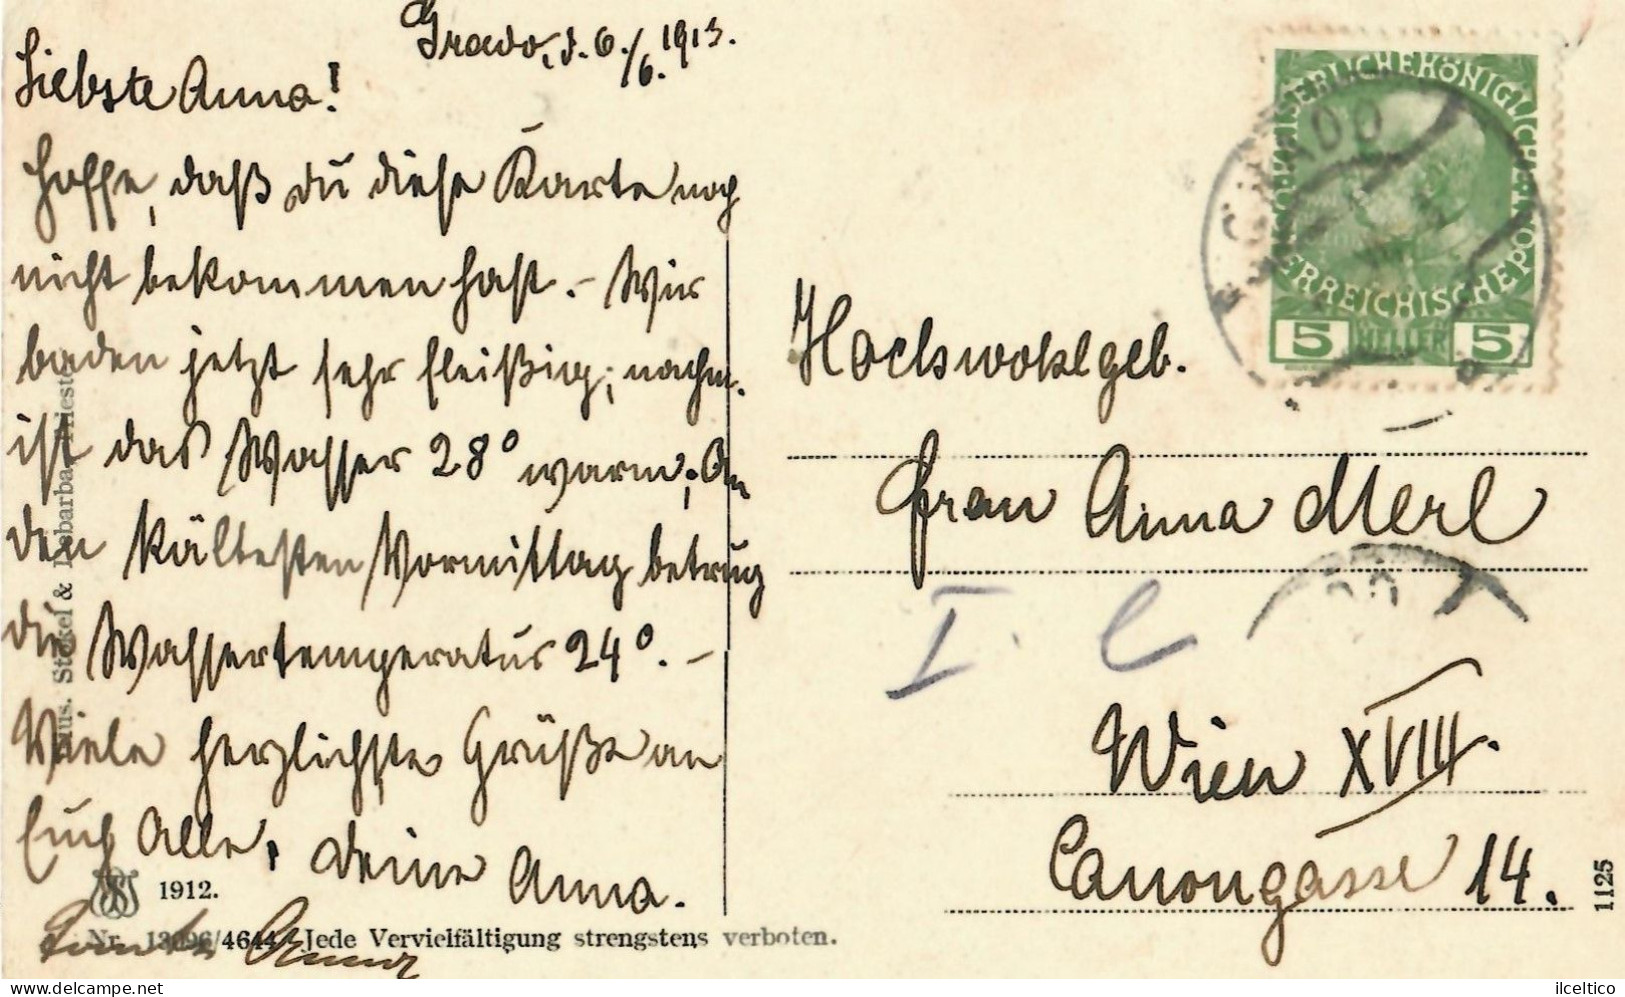 Grado, d. 6./6. 1913.
Liebste Anna!
Hoffe, daß du diese Karte noch
nicht bekommen hast. – Wir
baden jetzt sehr fleißig; nachm.
ist das Wasser 28° warm; An
den kältesten Vormittag betrug
die Wassertemperatur 24°. –
Viele herzlichste Grüße an
Euch Alle, deine Anna.
1912.
Nr. 13096/4644 Jede Vervielfältigung strengstens verboten.
Stokel & Debarba, Triest
KAISERLICHEKÖNIGLICHE
ÖSTERREICHISCHEPOST
5 HELLER 5
GRADO
Hochwohlgeb.
Frau Anna Merl
I. C
Wien XVIII.
Canongasse 14.
1125
delcampe.net
ilceltico